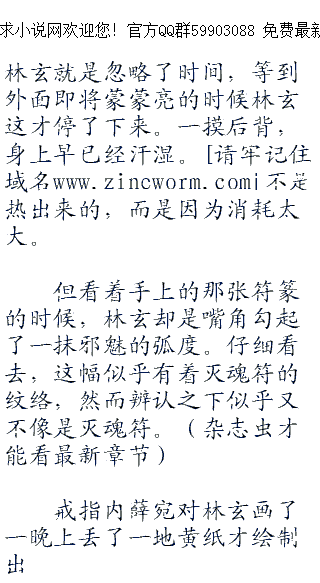 求小说网欢迎您！官方QQ群59903088 免费最新
林玄就是忽略了时间，等到
外面即将蒙蒙亮的时候林玄
这才停了下来。一摸后背，
身上早已经汗湿。[请牢记住
域名www.zincworm.com|不是
热出来的，而是因为消耗太
大。
但看着手上的那张符篆
的时候，林玄却是嘴角勾起
了一抹邪魅的弧度。仔细看
去，这幅似乎有着灭魂符的
纹络，然而辨认之下似乎又
不像是灭魂符。（杂志虫才
能看最新章节）
戒指内薛宛对林玄画了
一晚上丢了一地黄纸才绘制
出